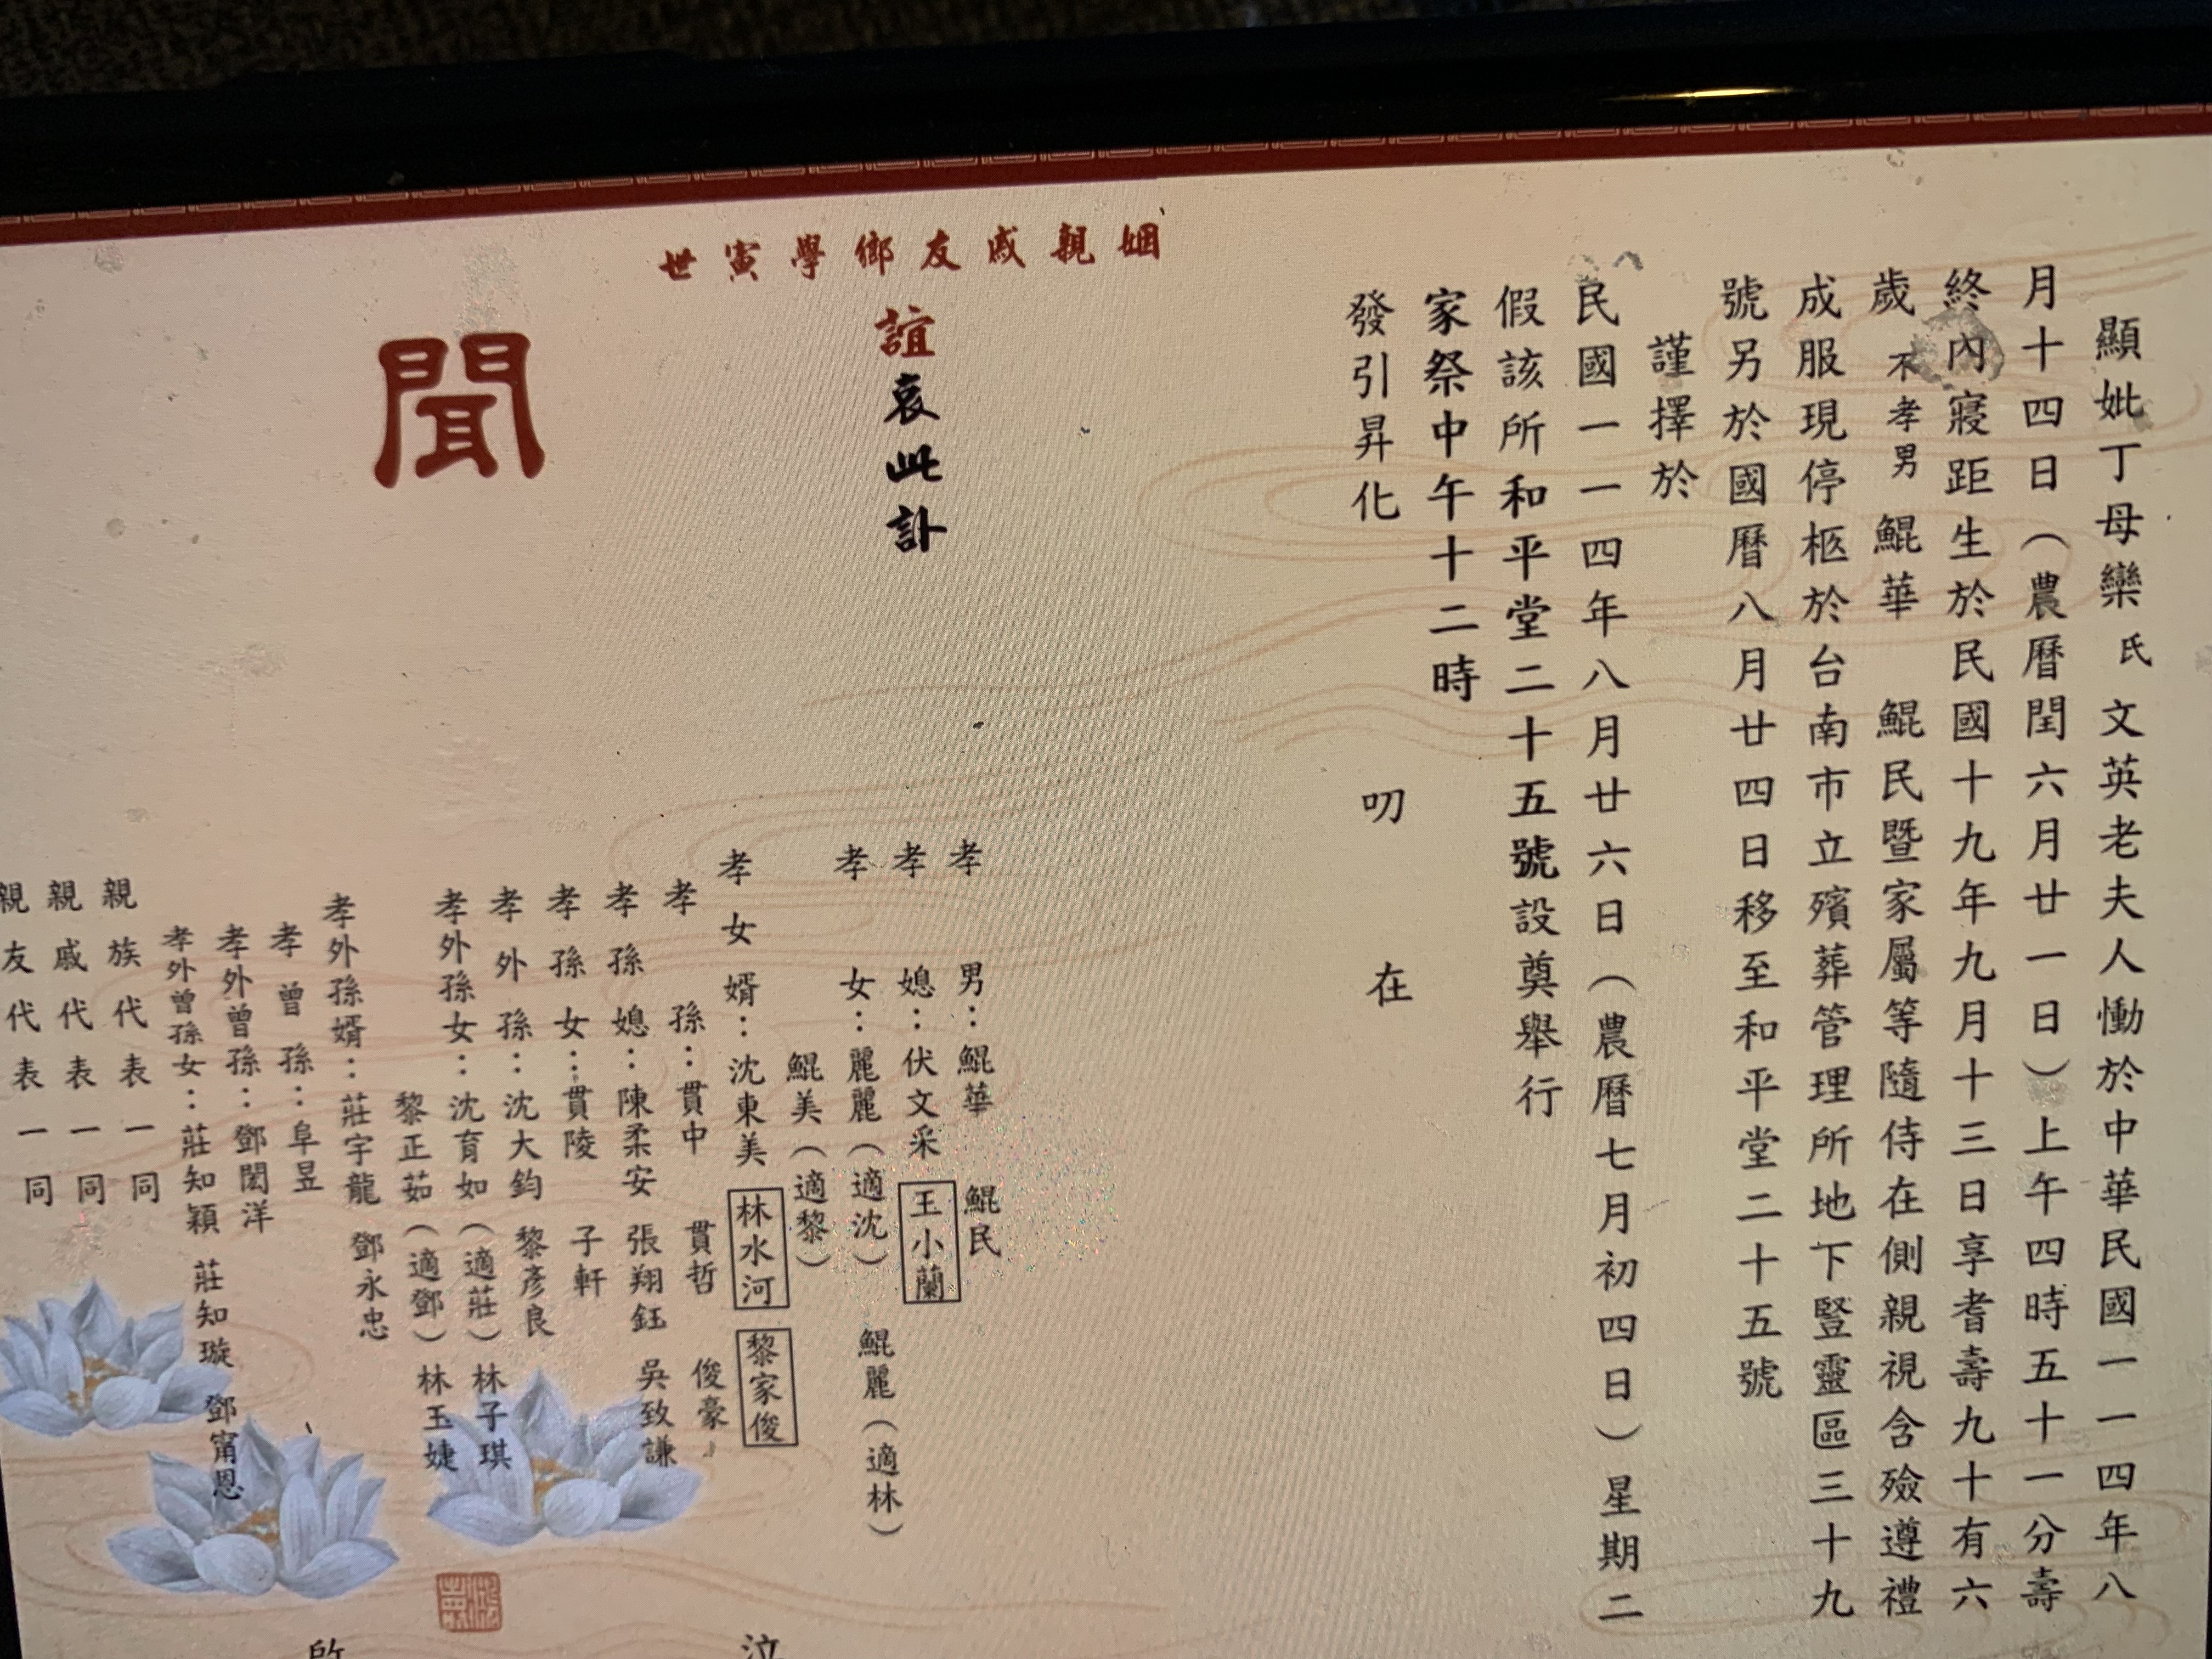 顯妣丁母欒氏文英老夫人慟於中華民國一一四年八
月十四日（農曆閏六月廿一日）上午四時五十一分壽
終內寢距生於民國十九年九月十三日享耆壽九十有六
歲不孝男鯤華 鯤民暨家屬等隨侍在側親視含殮遵禮
成服現停柩於台南市立殯葬管理所地下豎靈區三十九
號另於國曆八月廿四日移至和平堂二十五號
謹擇於
民國一一四年八月廿六日（農曆七月初四日）星期二
假該所和平堂二十五號設奠舉行
家祭中午十二時
發引昇化 叨在
姻親戚友鄉學寅世
誼哀此訃
聞
孝男：鯤華 鯤民
孝媳：伏文采 王小蘭
孝女：麗麗（適沈） 鯤麗（適林）
鯤美（適黎）
孝女婿：沈東美 林水河 黎家俊
孝孫：貫中 貫哲 俊豪
孝孫媳：陳柔安 張翔鈺 吳致謙
孝孫女：貫陵 子軒
孝外孫：沈大鈞 黎彥良
孝外孫女：沈育如（適莊） 林子琪
黎正茹（適鄧） 林玉婕
孝外孫婿：莊宇龍 鄧永忠
孝曾孫：阜昱
孝外曾孫：鄧閎洋
孝外曾孫女：莊知穎 莊知璇 鄧甯恩
親族代表一同
親戚代表一同
親友代表一同
泣
啟